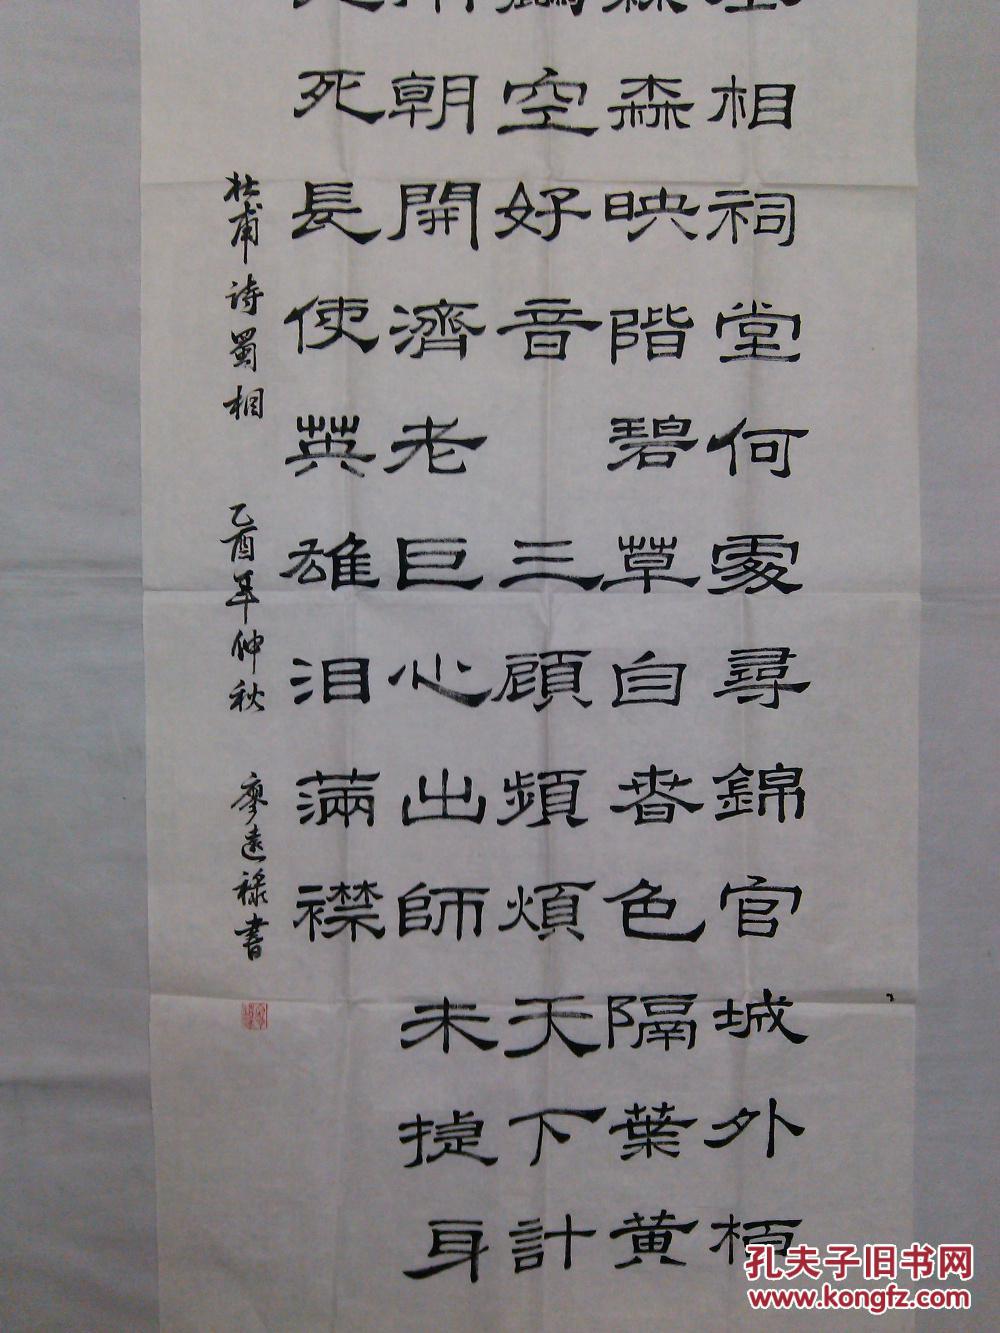 相祠堂何處尋錦官城外柏
森映階碧草自春色隔葉黄
空好音 三顧頻煩天下計
朝開濟老臣心出師未捷身
死長使英雄泪滿襟
杜甫诗蜀相 乙酉年仲秋 廖遠禄書
孔夫子旧书网
www.kongfz.com